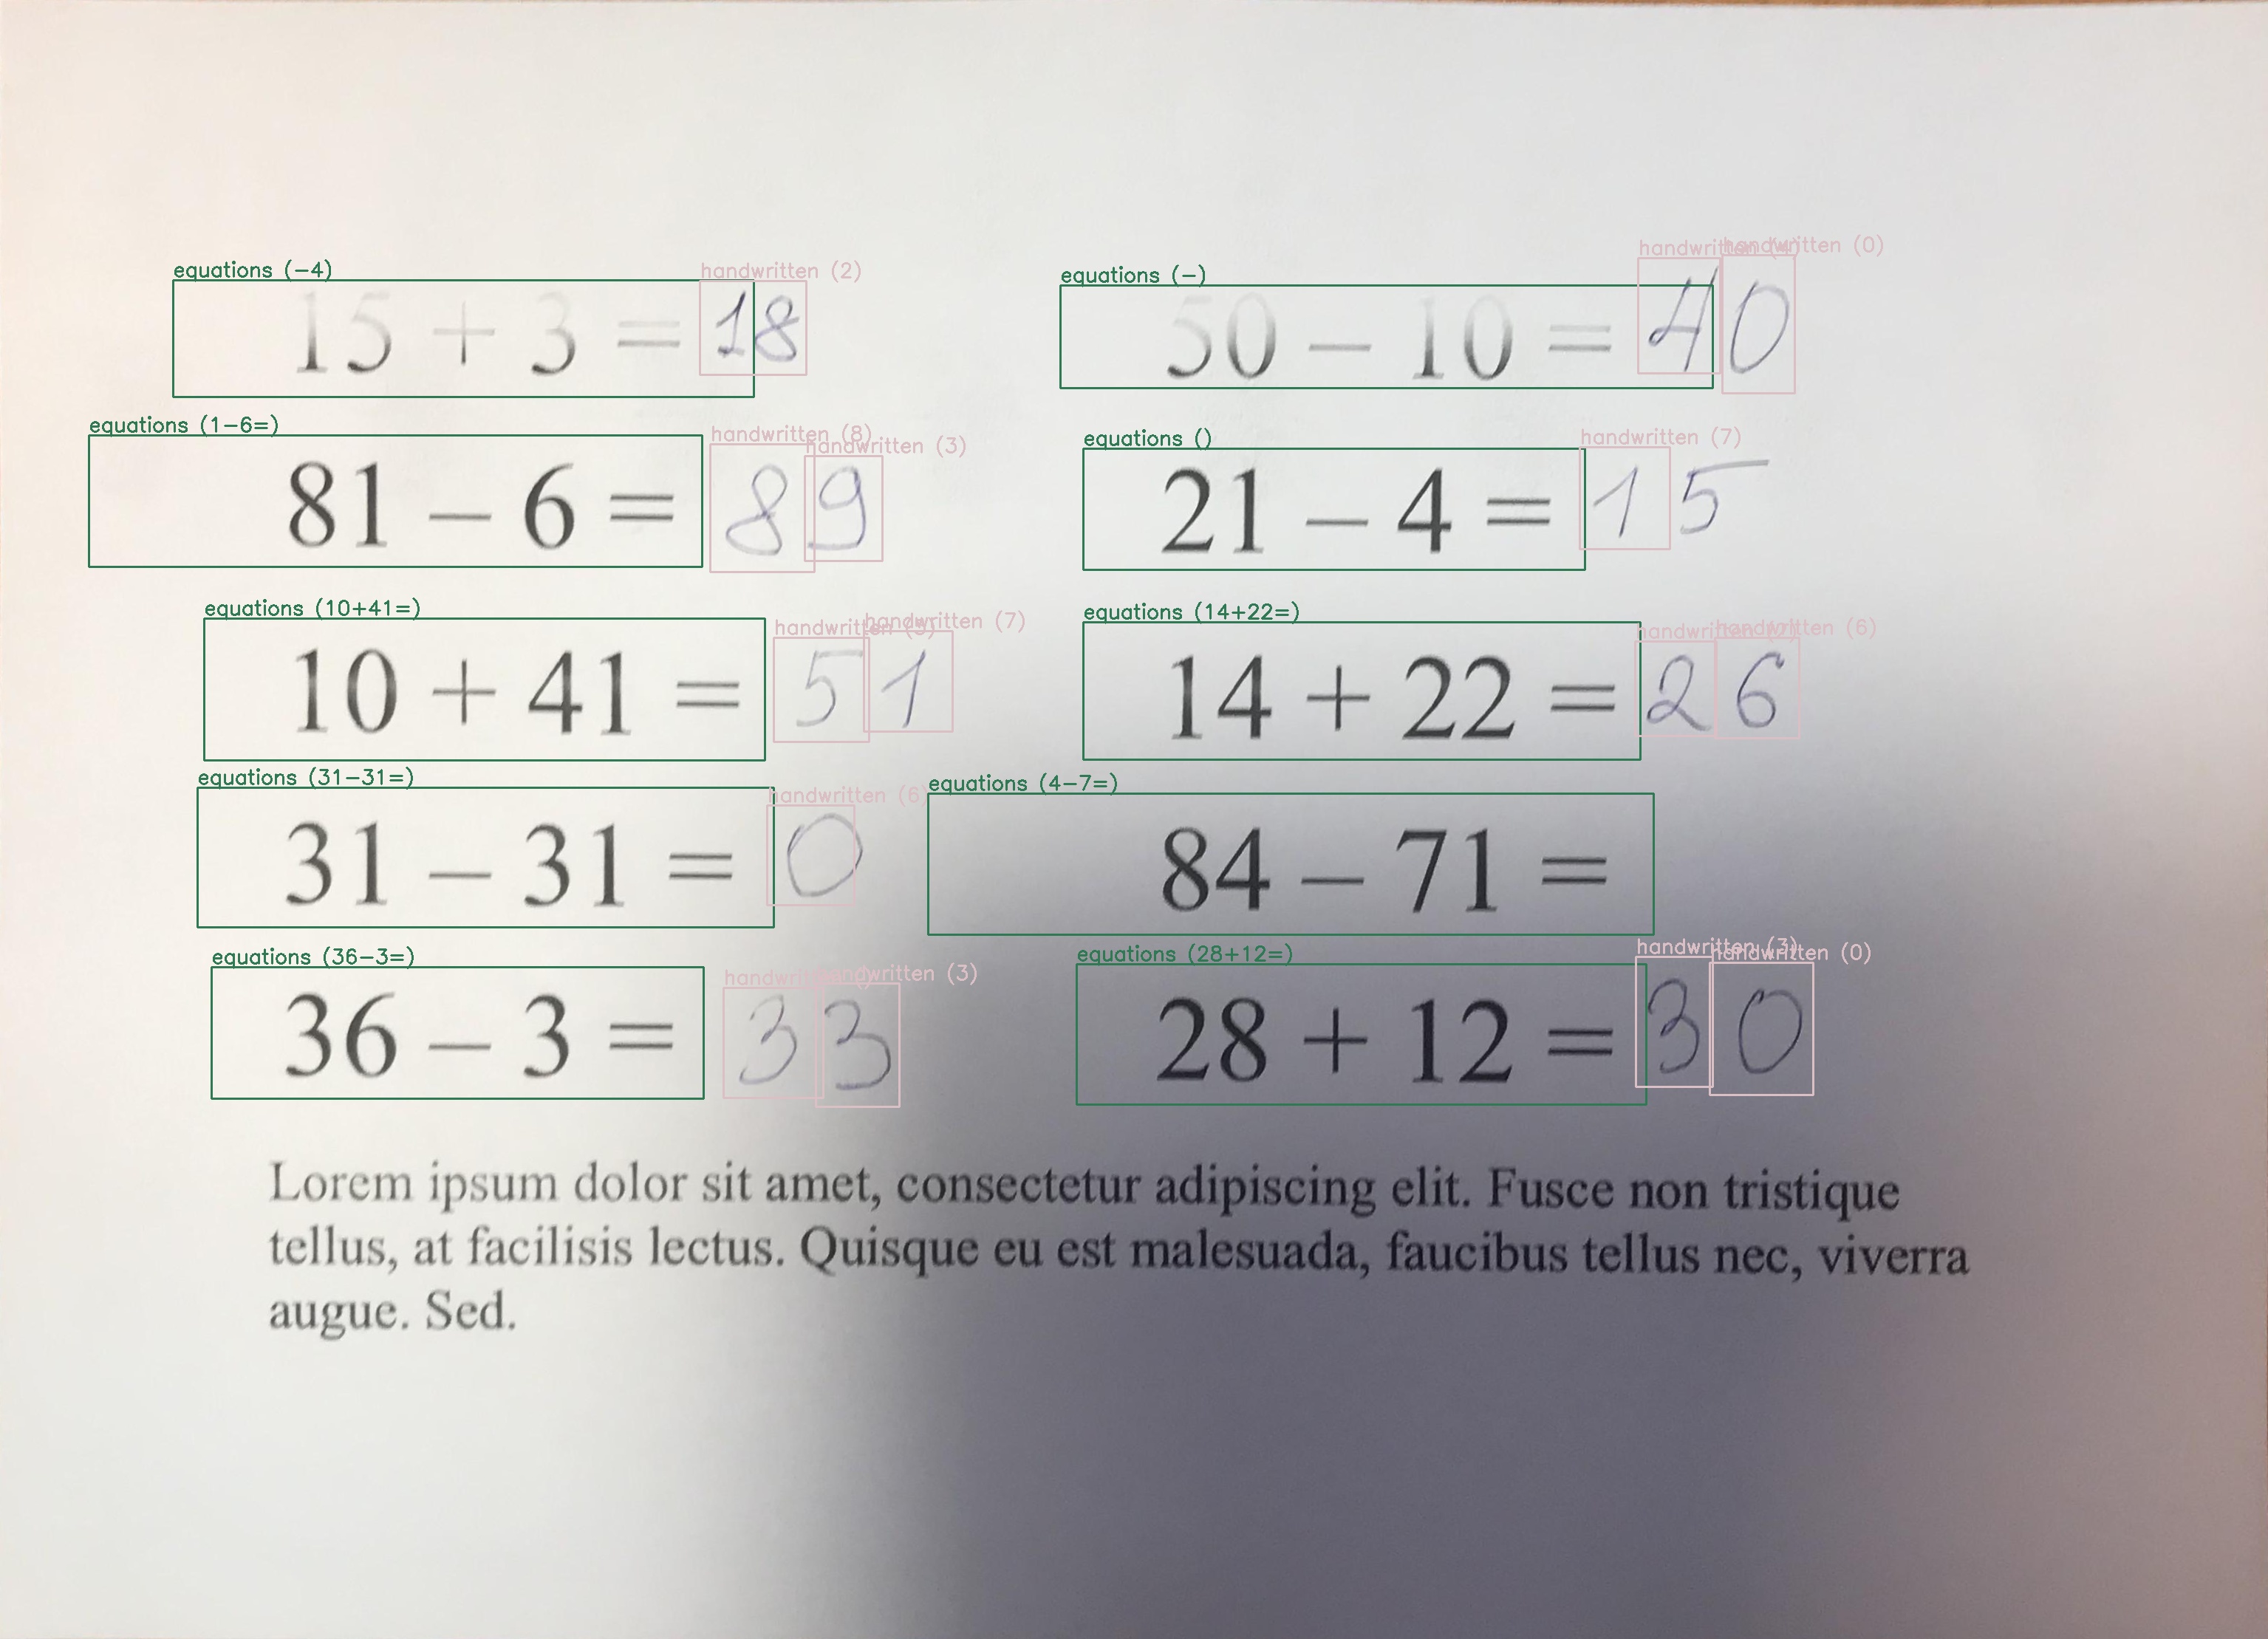 equations (-4) handwritten (2) equations (-) handwritten (4) handwritten (0)
15 + 3 = 18 50 – 10 = 40
equations (1-6=) handwritten (8) handwritten (3) equations () handwritten (7)
81 – 6 = 89 21 – 4 = 15
equations (10+41=) handwritten (5) handwritten (7) equations (14+22=) handwritten handwritten (6)
10 + 41 = 51 14 + 22 = 26
equations (31-31=) handwritten (6) equations (4-7=)
31 – 31 = 0 84 – 71 =
equations (36-3=) handwritten handwritten (3) equations (28+12=) handwritten (3) handwritten (0)
36 – 3 = 33 28 + 12 = 30
Lorem ipsum dolor sit amet, consectetur adipiscing elit. Fusce non tristique
tellus, at facilisis lectus. Quisque eu est malesuada, faucibus tellus nec, viverra
augue. Sed.